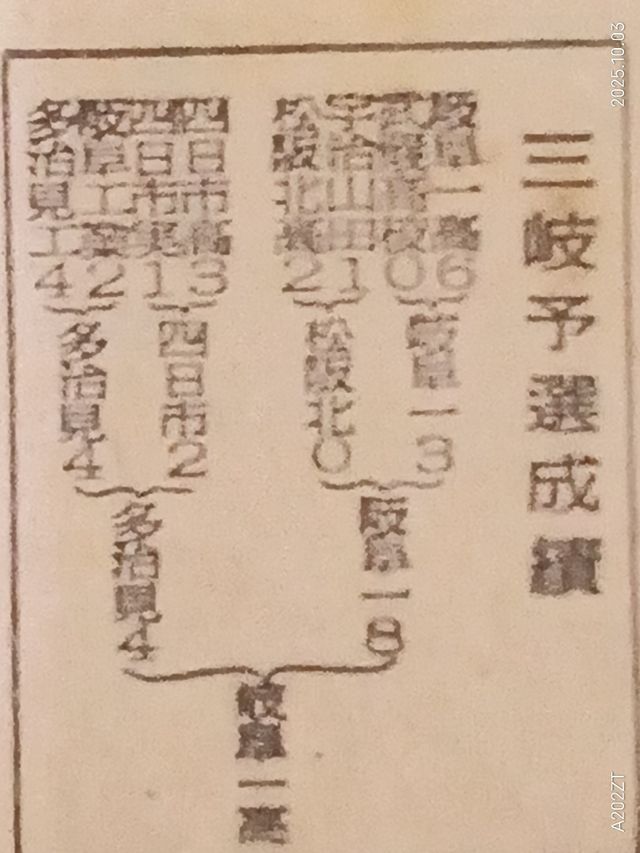 三岐予選成績
岐阜一高6
0
宇治山田1
松阪北2
四日市高3
四日市実1
岐阜工業2
多治見工4
岐阜一3
松阪北0
四日市2
多治見4
岐阜一8
多治見4
岐阜一高
2025.10.03
A202ZT